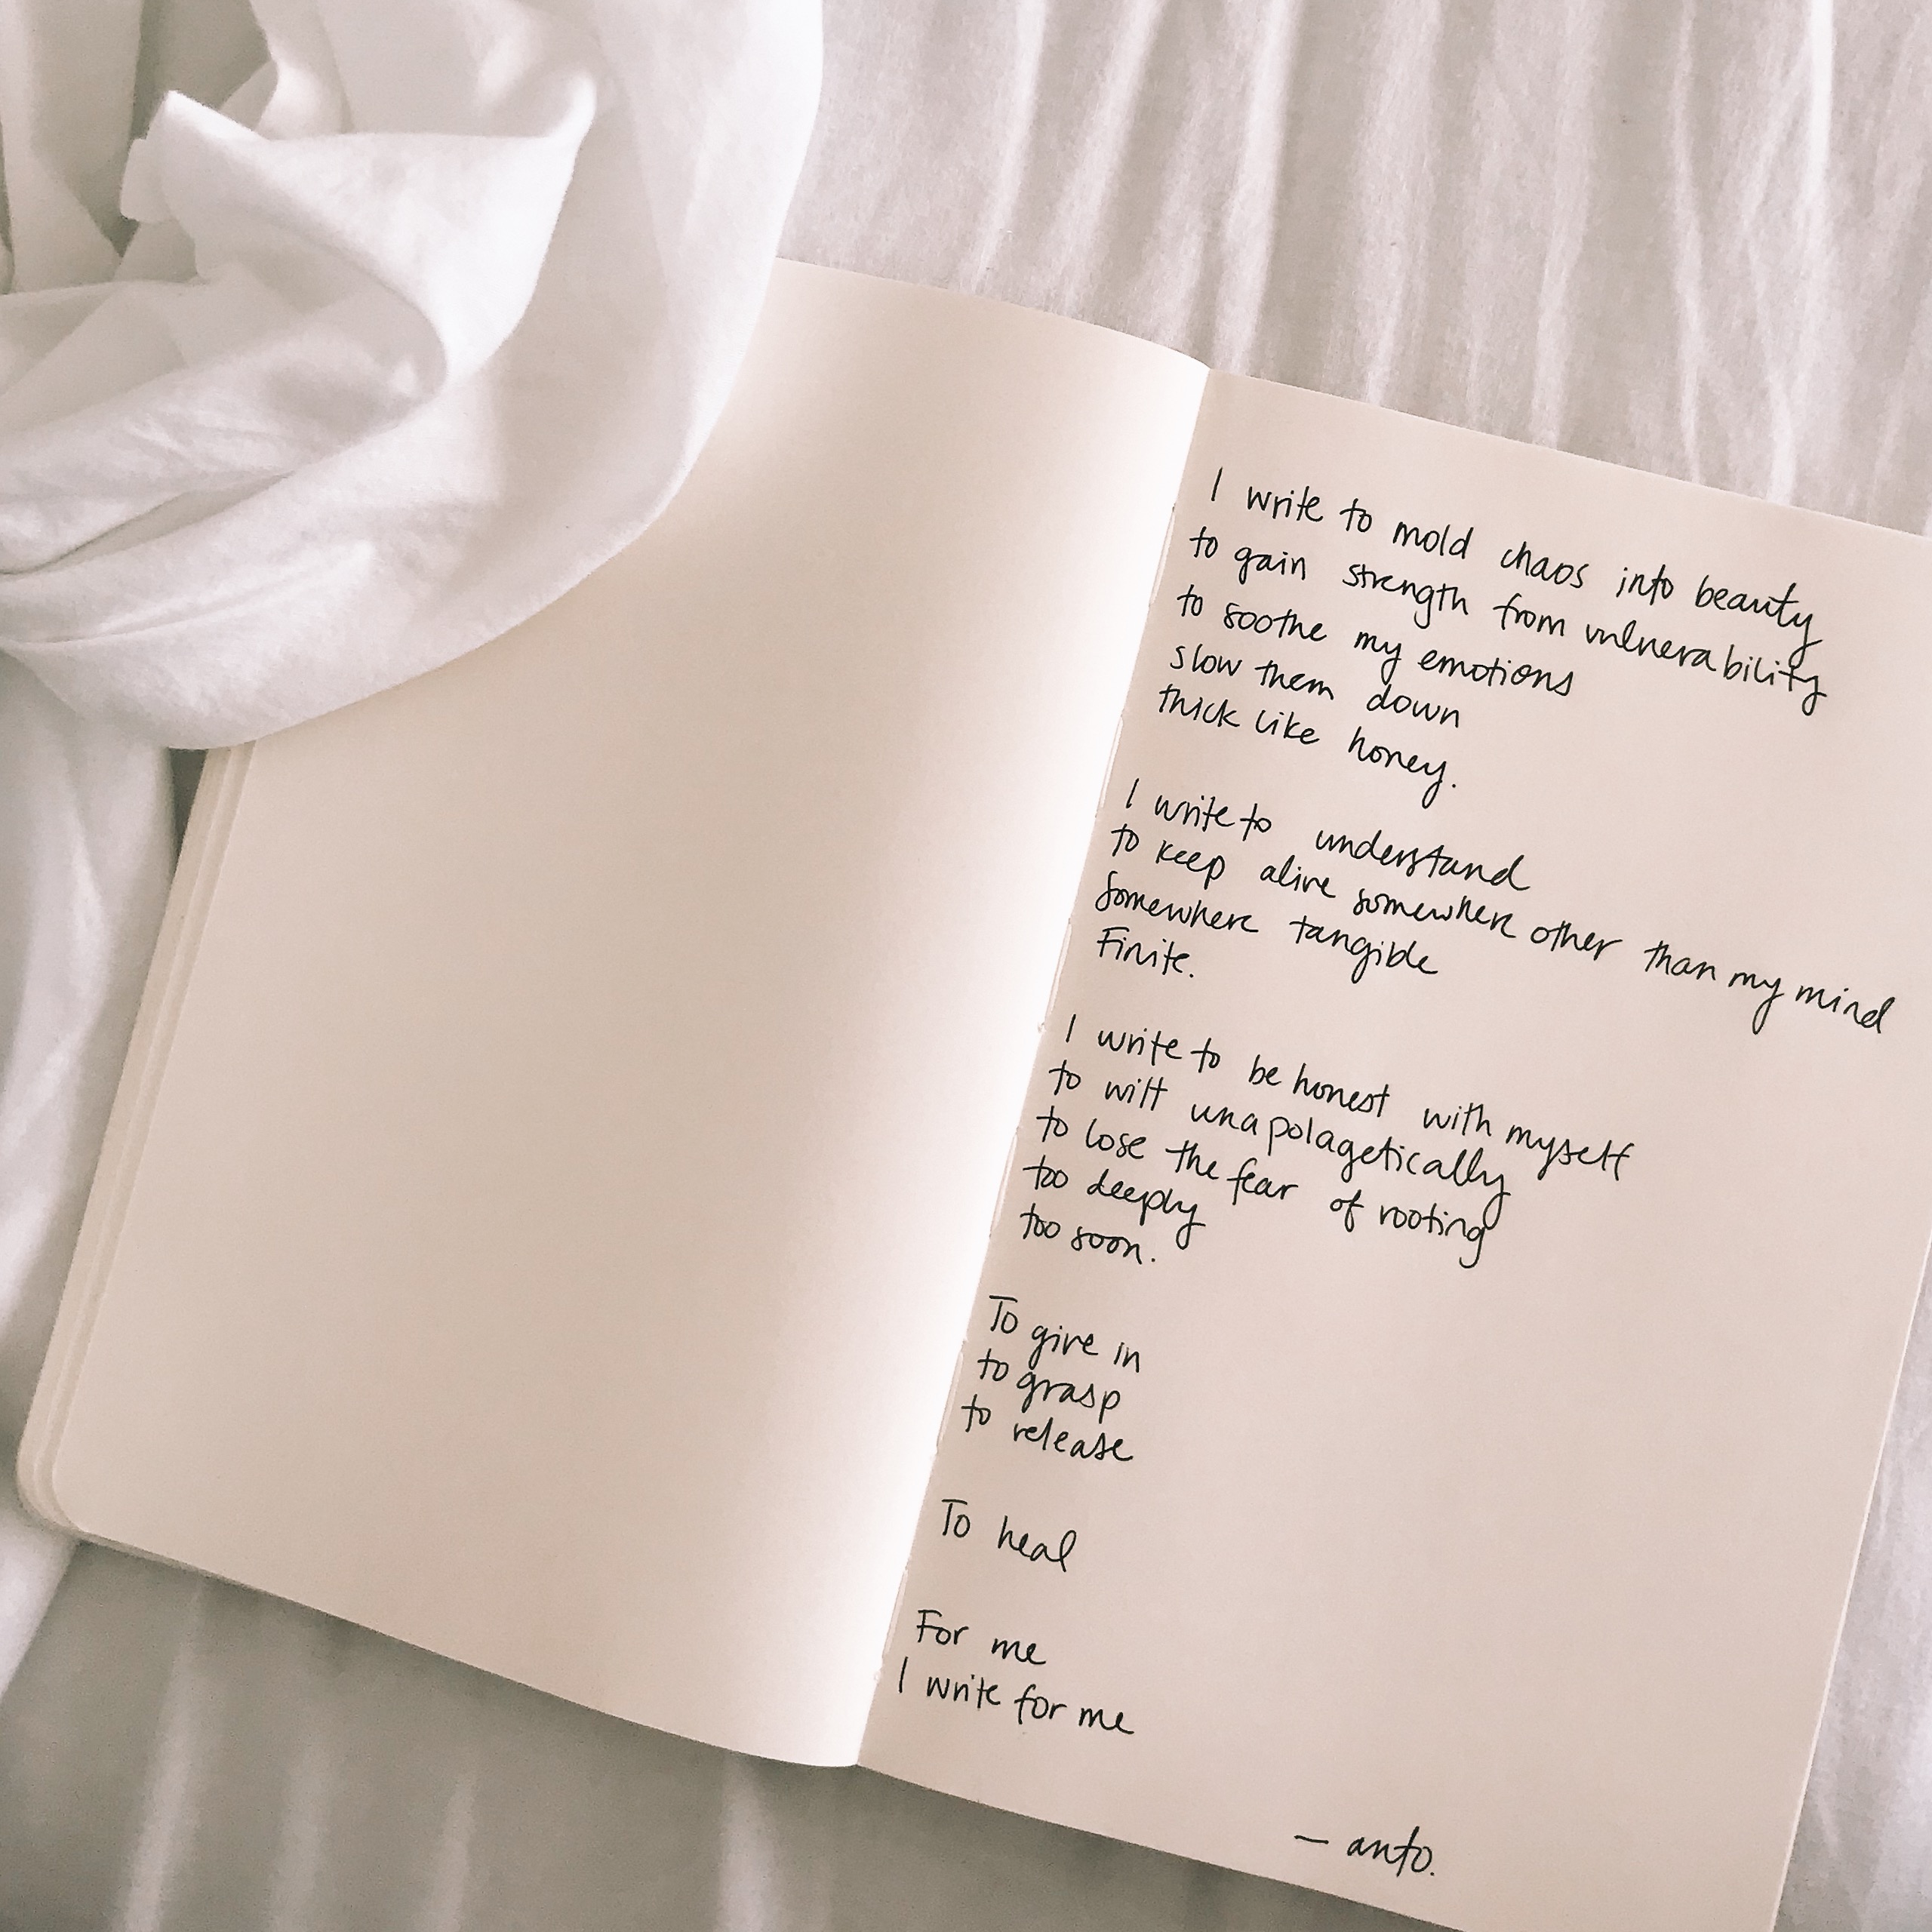 I write to mold chaos into beauty
to gain strength from vulnerability
to soothe my emotions
slow them down
thick like honey.
I write to understand
to keep alive somewhere other than my mind
somewhere tangible
Finite.
I write to be honest with myself
to wilt unapolagetically
to lose the fear of rooting
too deeply
too soon.
To give in
to grasp
to release
To heal
For me
I write for me
— anto.